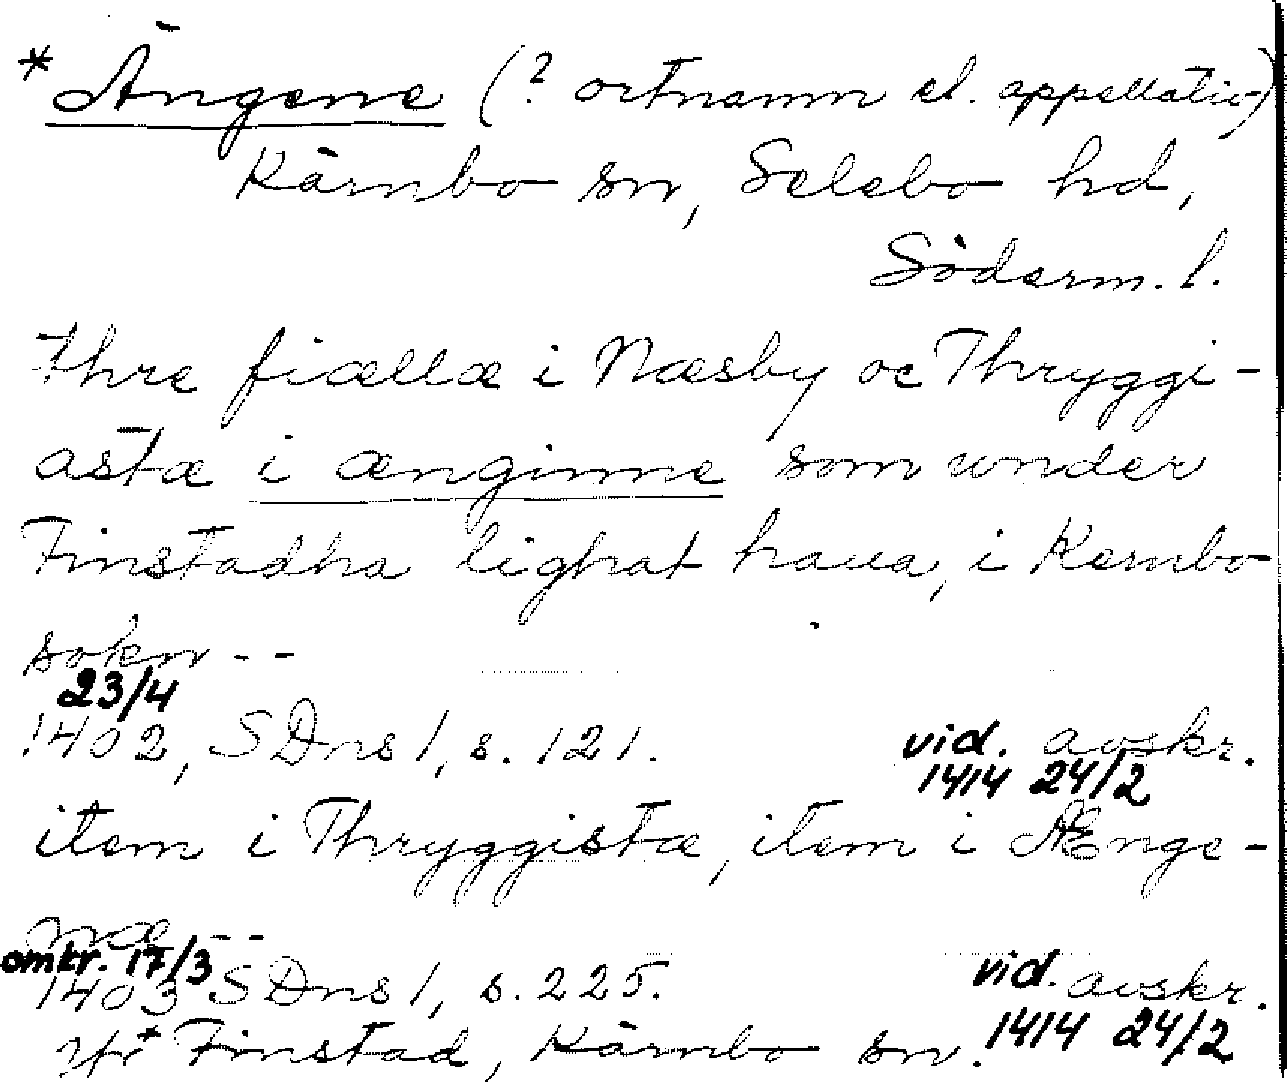 * Ängene (? ortnamn el. appellativ)
Kärnbo sn, Selebo hd,
Söderm. l.
thre fiællæ i Næsby oc Thryggi-
astæ i ænginne som under
Finstadha lighat haua, i Kernbo
sokn --
23/4
1402, SDns 1, s. 121. vid. avskr.
1414 24/2
item i Thryggistæ, item i Ænge-
næ --
omkr. 17/3
1403 SDns 1, s. 225. vid. avskr.
1414 24/2
Jfr * Finstad, Kärnbo sn.